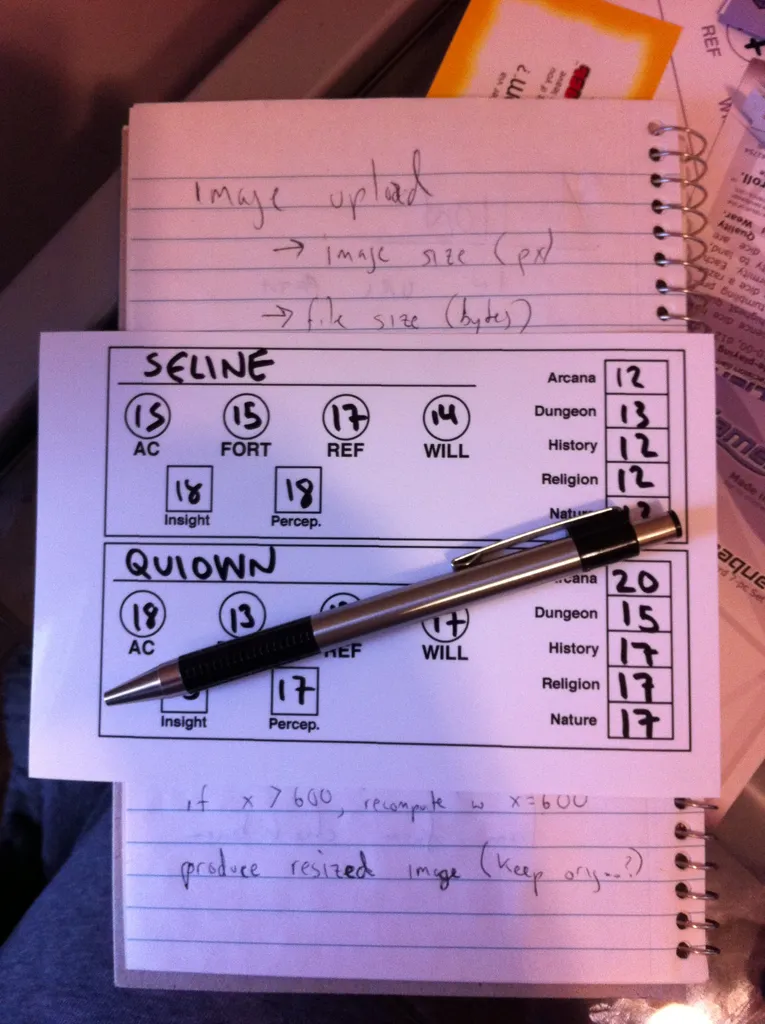 Image upload
→ image size (px)
→ file size (bytes)
SELINE
15 15 17 14
AC FORT REF WILL
18 18
Insight Percep.
Arcana 12
Dungeon 13
History 12
Religion 12
Nature
QUIOWN
18 13 17
AC REF WILL
17
Insight Percep.
Arcana 20
Dungeon 15
History 17
Religion 17
Nature 17
if x > 600, recompute w x=600
produce resized image (keep orig...?)
REF
roll.
Wear.
Quality